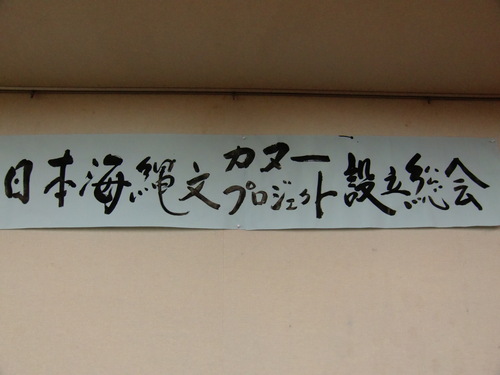 日本海縄文カヌープロジェクト設立総会